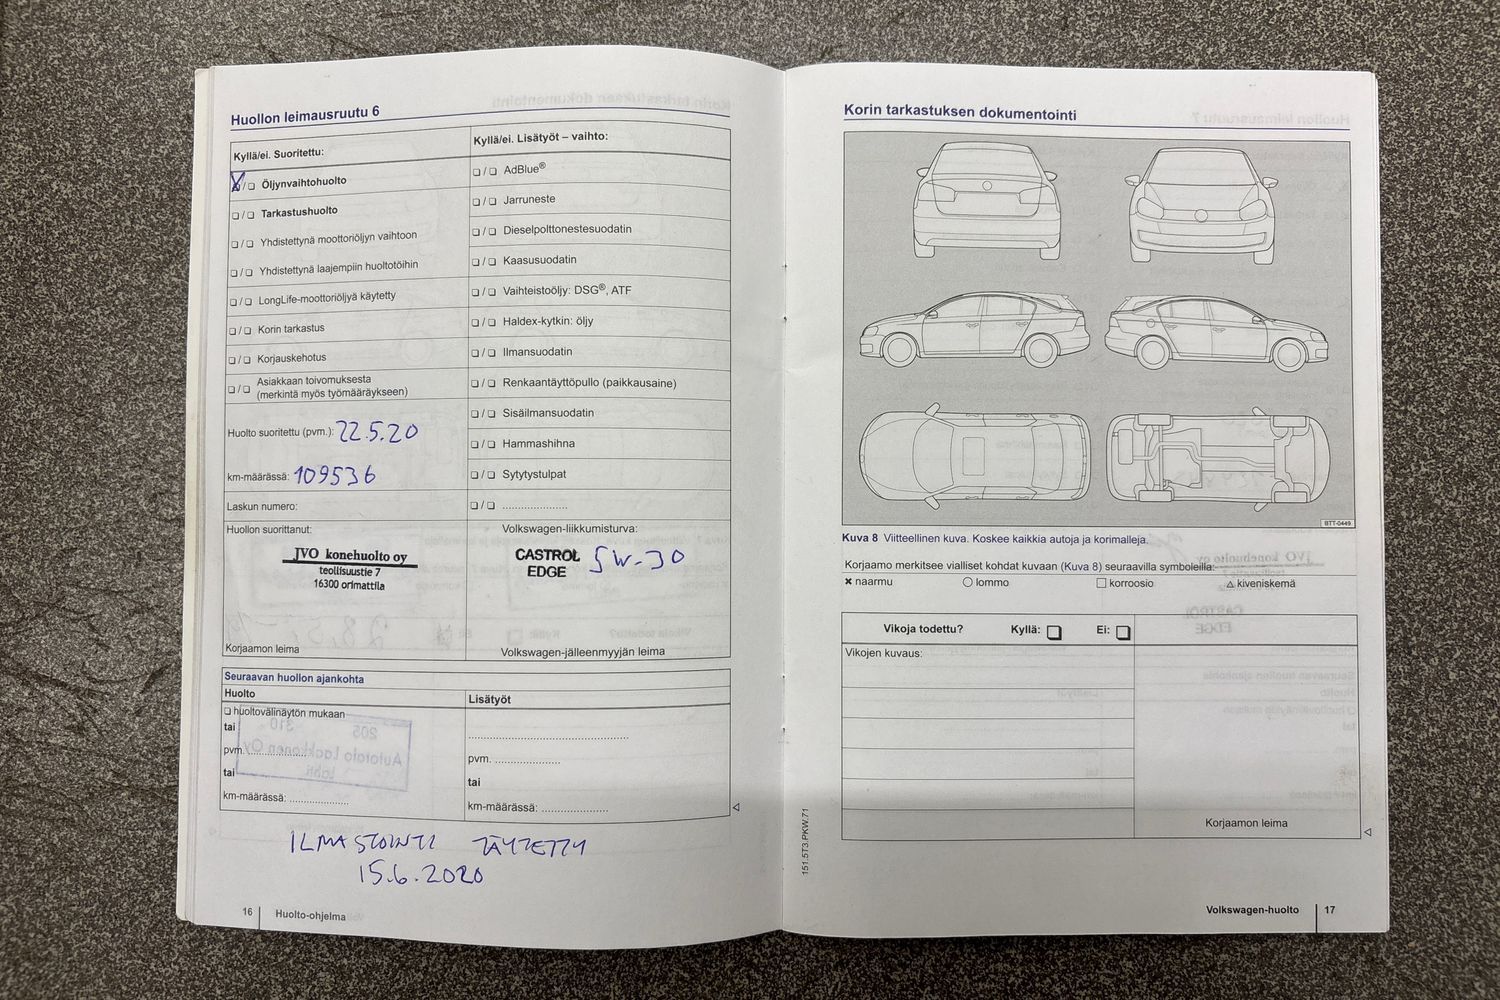 Huollon leimausruutu 6
Kyllä/ei. Suoritettu:
X/❏ Öljynvaihtohuolto
❏/❏ Tarkastushuolto
❏/❏ Yhdistettynä moottoriöljyn vaihtoon
❏/❏ Yhdistettynä laajempiin huoltotöihin
❏/❏ LongLife-moottoriöljyä käytetty
❏/❏ Korin tarkastus
❏/❏ Korjauskehotus
❏/❏ Asiakkaan toivomuksesta
(merkintä myös työmääräykseen)
Huolto suoritettu (pvm.): 22.5.20
km-määrässä: 109536
Laskun numero:
Kyllä/ei. Lisätyöt – vaihto:
❏/❏ AdBlue®
❏/❏ Jarruneste
❏/❏ Dieselpolttonestesuodatin
❏/❏ Kaasusuodatin
❏/❏ Vaihteistoöljy: DSG®, ATF
❏/❏ Haldex-kytkin: öljy
❏/❏ Ilmansuodatin
❏/❏ Renkaantäyttöpullo (paikkausaine)
❏/❏ Sisäilmansuodatin
❏/❏ Hammashihna
❏/❏ Sytytystulpat
❏/❏ ......................
Huollon suorittanut:
JVO konehuolto oy
teollisuustie 7
16300 orimattila
Korjaamon leima
Volkswagen-liikkumisturva:
CASTROL EDGE 5W-30
Volkswagen-jälleenmyyjän leima
Seuraavan huollon ajankohta
Huolto
❏ huoltovälinäytön mukaan
tai
pvm. ......................
tai
km-määrässä: ....................
Lisätyöt
......................................................
pvm. ......................
tai
km-määrässä: ......................
ILMASTOINTI TÄYTETTY
15.6.2020
16 Huolto-ohjelma
Korin tarkastuksen dokumentointi
BTT-0449
Kuva 8 Viitteellinen kuva. Koskee kaikkia autoja ja korimalleja.
Korjaamo merkitsee vialliset kohdat kuvaan (Kuva 8) seuraavilla symboleilla:
✖ naarmu ○ lommo □ korroosio △ kiveniskemä
Vikoja todettu? Kyllä: ❏ Ei: ❏
Vikojen kuvaus:
Korjaamon leima
151.5T3.PKW.71
Volkswagen-huolto 17